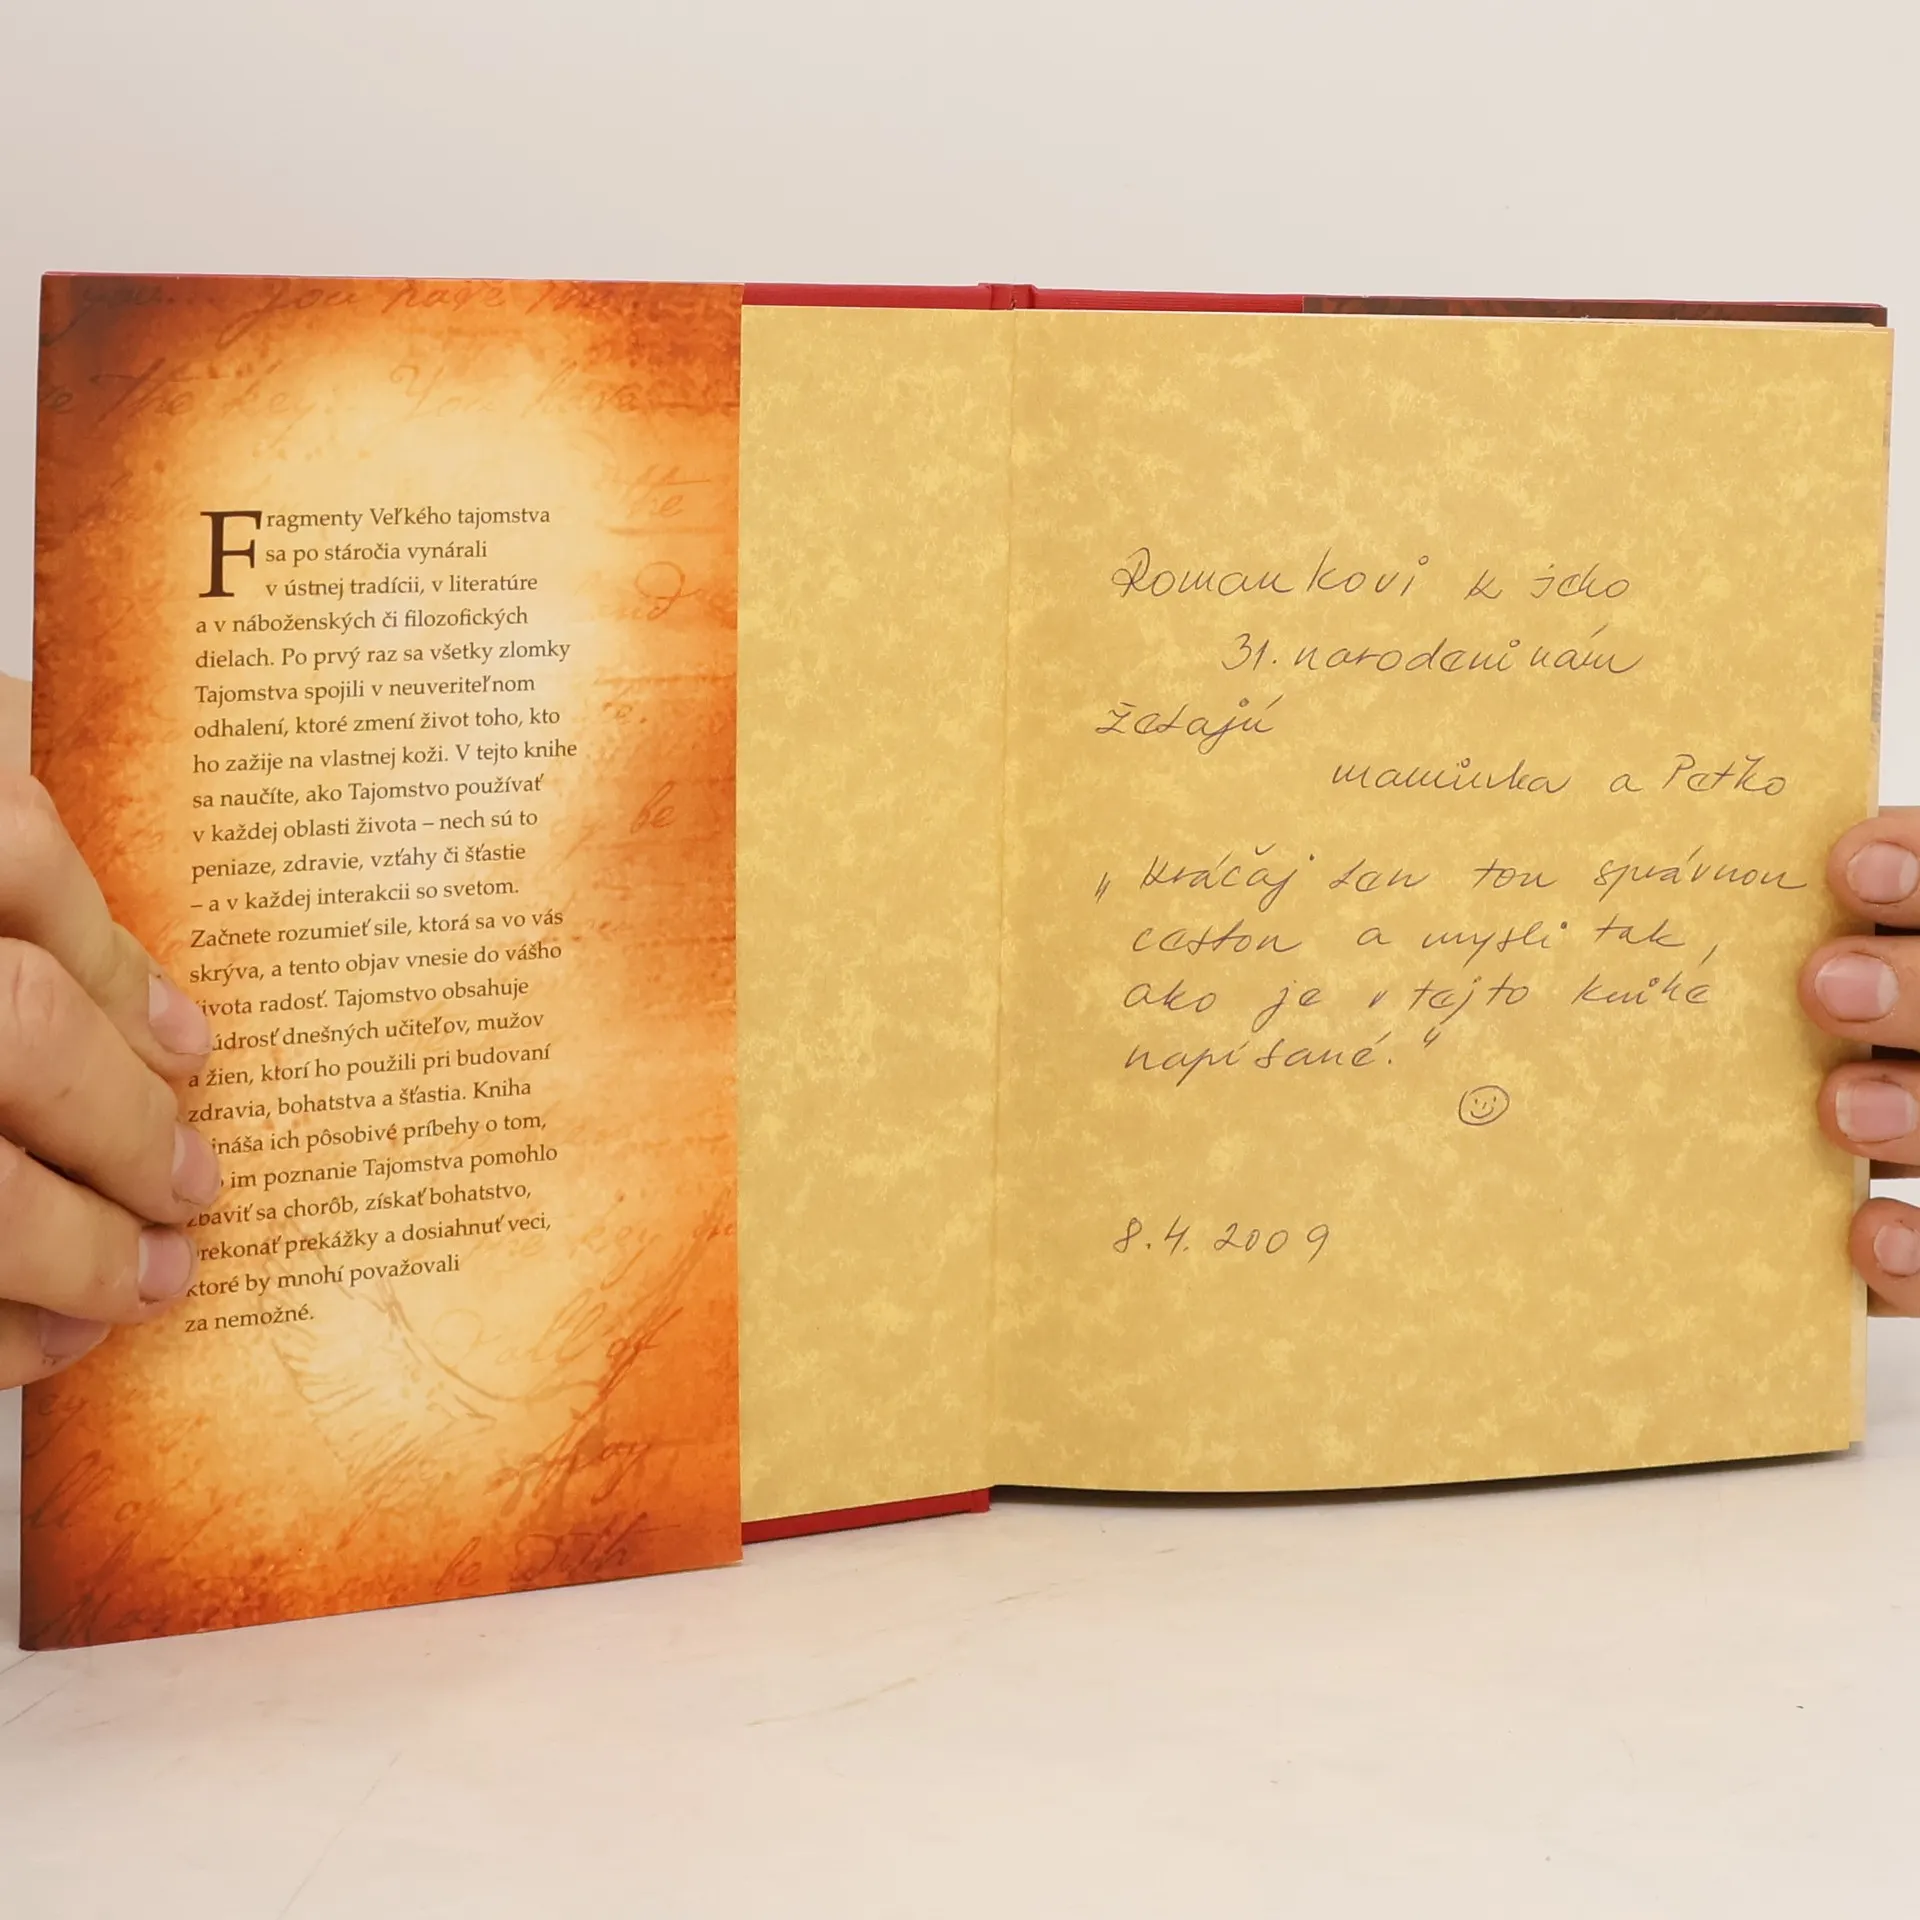 Fragmenty Veľkého tajomstva
sa po stáročia vynárali
v ústnej tradícii, v literatúre
a v náboženských či filozofických
dielach. Po prvý raz sa všetky zlomky
Tajomstva spojili v neuveriteľnom
odhalení, ktoré zmení život toho, kto
ho zažije na vlastnej koži. V tejto knihe
sa naučíte, ako Tajomstvo používať
v každej oblasti života – nech sú to
peniaze, zdravie, vzťahy či šťastie
– a v každej interakcii so svetom.
Začnete rozumieť sile, ktorá sa vo vás
skrýva, a tento objav vnesie do vášho
ivota radosť. Tajomstvo obsahuje
údrosť dnešných učiteľov, mužov
a žien, ktorí ho použili pri budovaní
zdravia, bohatstva a šťastia. Kniha
ináša ich pôsobivé príbehy o tom,
im poznanie Tajomstva pomohlo
zbaviť sa chorôb, získať bohatstvo,
rekonať prekážky a dosiahnuť veci,
ktoré by mnohí považovali
za nemožné.
Romankovi k jeho
31. narodeninám
želajú
maminka a Peťko
"Kráčaj len tou správnou
cestou a mysli tak,
ako je v tejto knihe
napísané."
8.4.2009